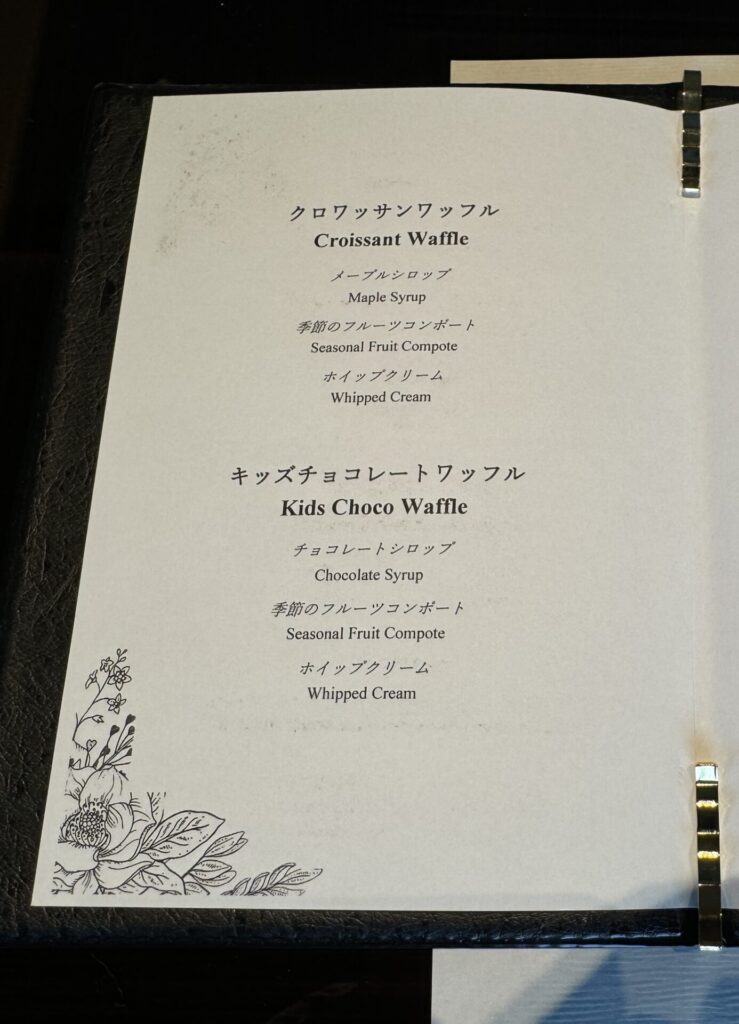 クロワッサンワッフル
Croissant Waffle
メープルシロップ
Maple Syrup
季節のフルーツコンポート
Seasonal Fruit Compote
ホイップクリーム
Whipped Cream
キッズチョコレートワッフル
Kids Choco Waffle
チョコレートシロップ
Chocolate Syrup
季節のフルーツコンポート
Seasonal Fruit Compote
ホイップクリーム
Whipped Cream